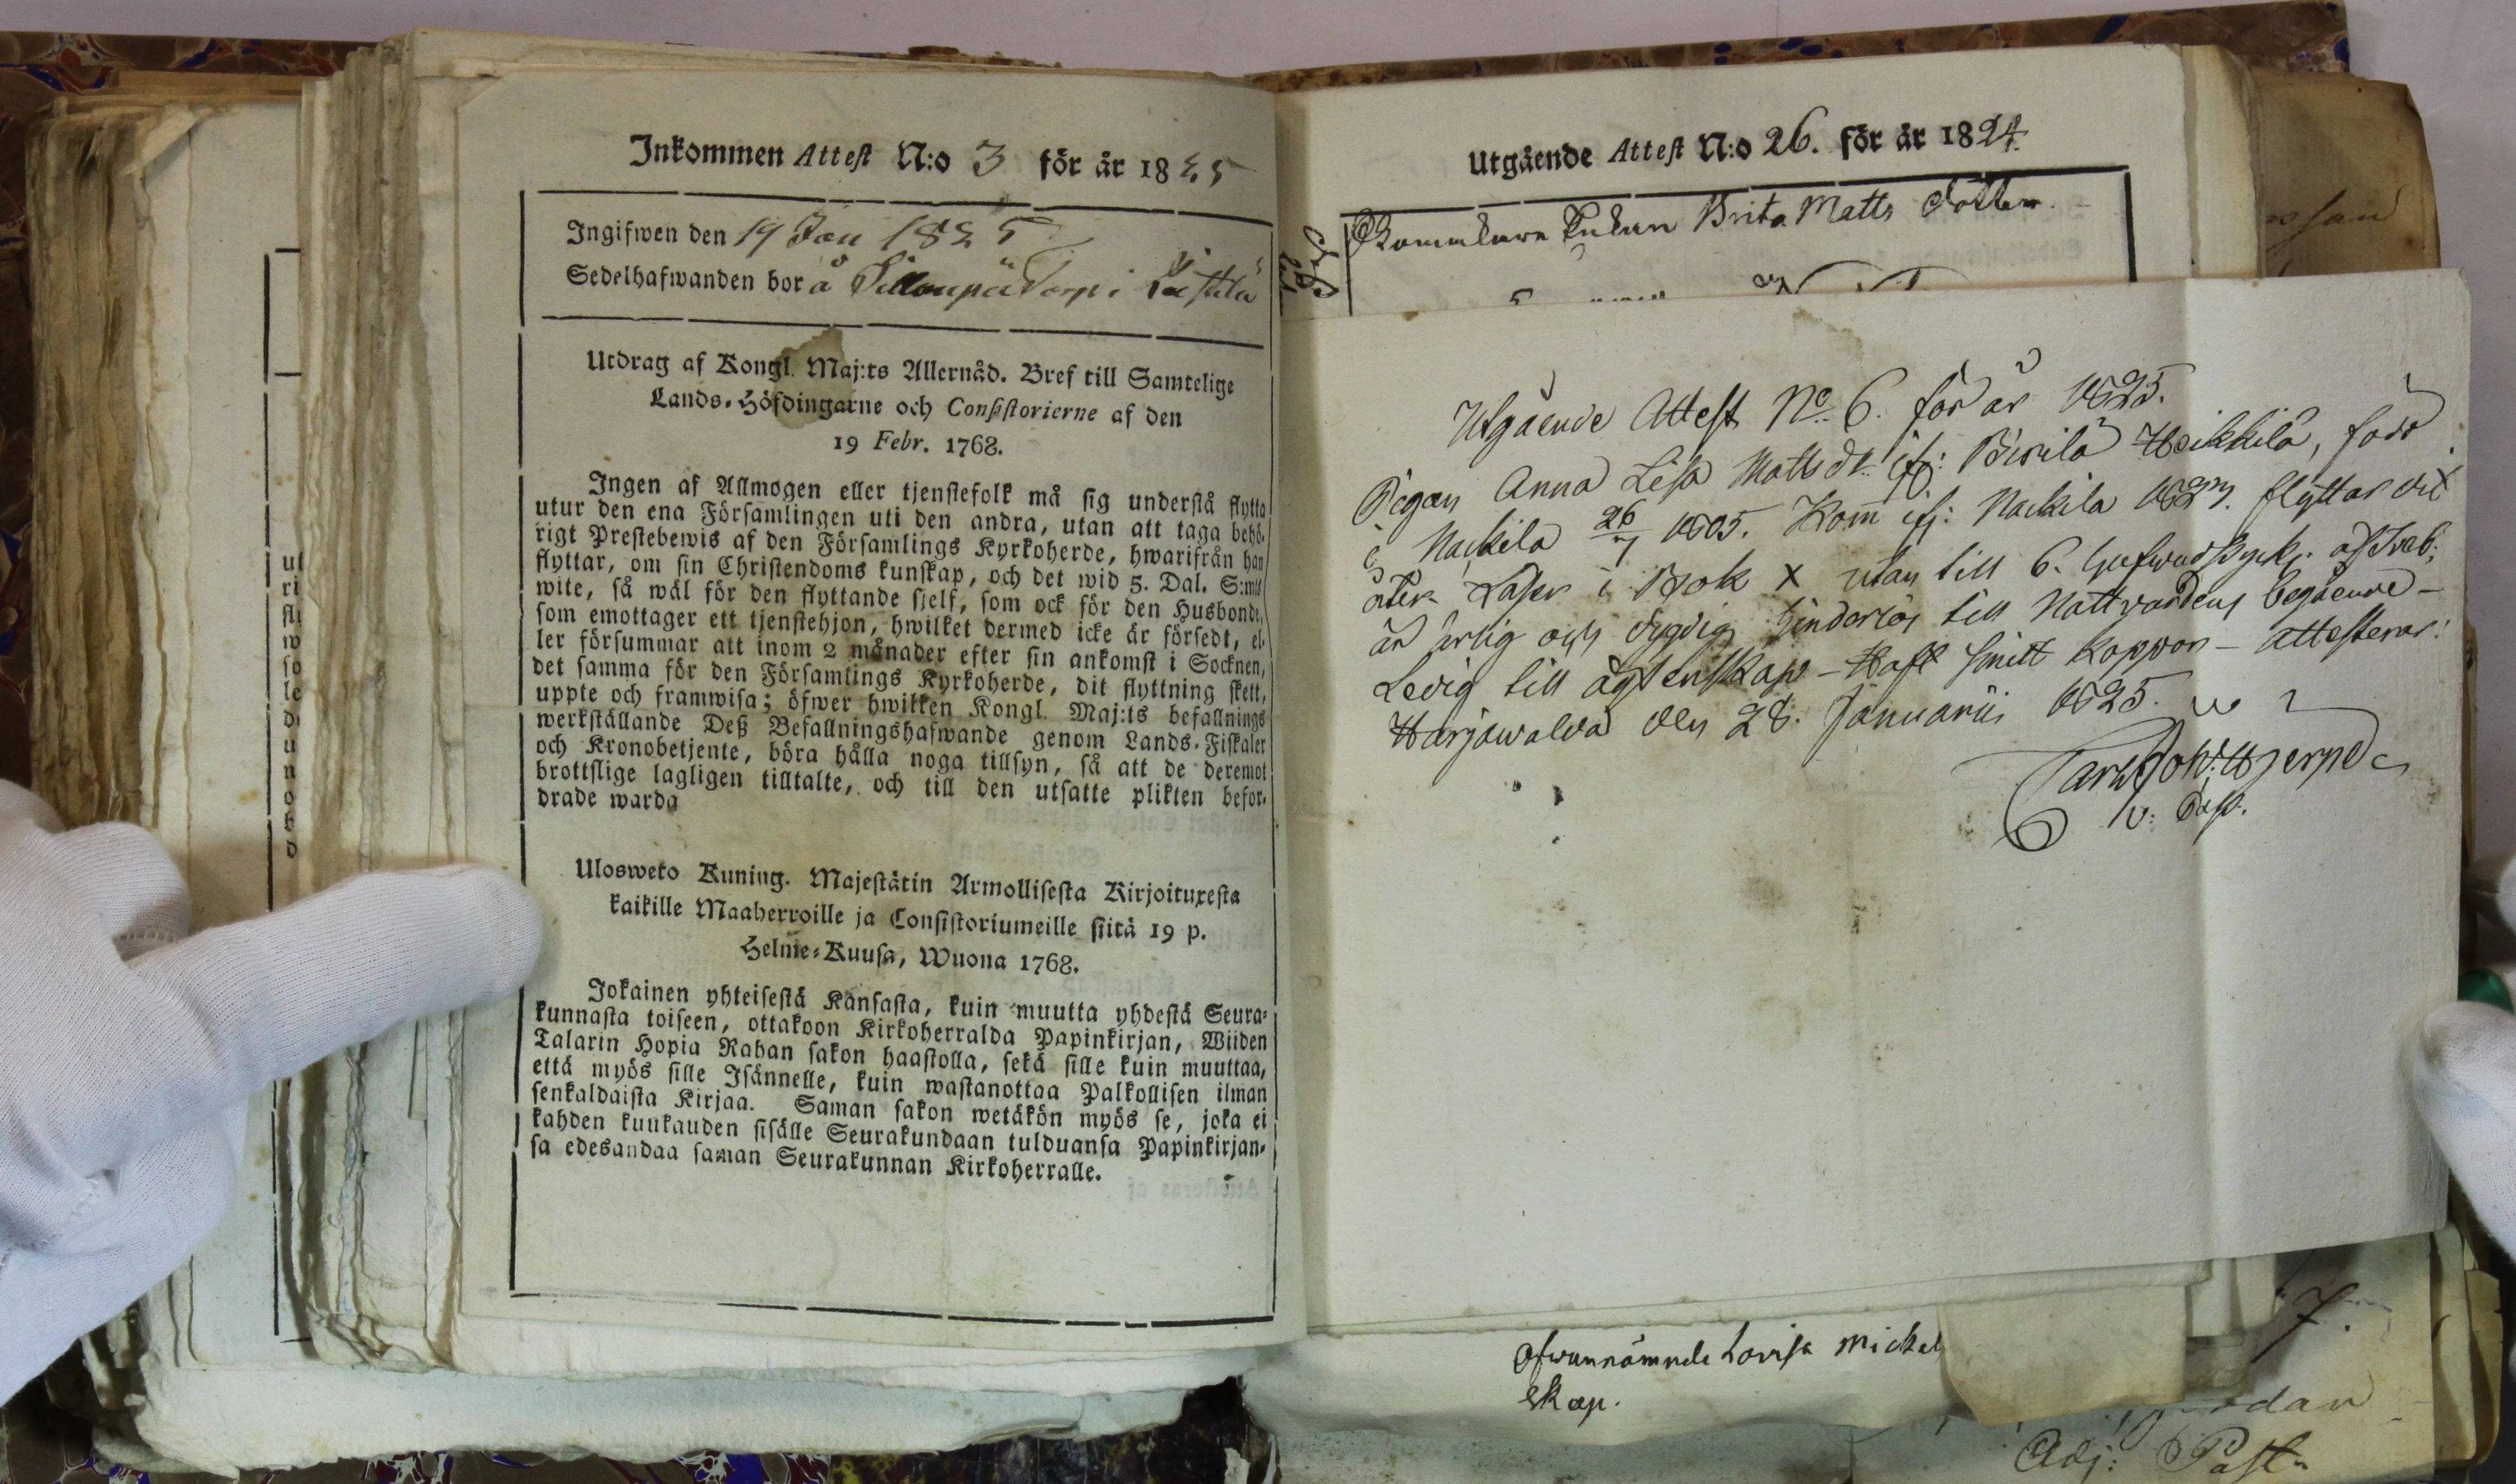 Inkommen Attest N:o 3 för år 1825
Ingifwen den 19 Jan 1825
Sedelhafwanden bor å Torp i
Utdrag af Kongl. Maj:ts Allernåd. Bref till Samtelige
Lands-Höfdingarne och Consistorierne af den
19 Febr. 1768.
Ingen af Allmogen eller tjenstefolk må sig understå flytta
utur den ena Församlingen uti den andra, utan att taga behö-
rigt Prestebewis af den Församlings Kyrkoherde, hwarifrån han
flyttar, om sin Christendoms kunskap, och det wid 5. Dal. S:mts
wite, så wäl för den flyttande sjelf, som ock för den Husbonde,
som emottager ett tjenstehjon, hwilket dermed icke är försedt, el-
ler försummar att inom 2 månader efter sin ankomst i Socknen,
det samma för den Församlings Kyrkoherde, dit flyttning skett,
uppte och framwisa; öfwer hwilken Kongl. Maj:ts befallnings
werkställande Deß Befallningshafwande genom Lands-Fiskaler
och Kronobetjente, böra hålla noga tillsyn, så att de deremot
brottslige lagligen tilltalte, och till den utsatte plikten befor-
drade warda
Ulosweto Kuning. Majestätin Armollisesta Kirjoituxesta
kaikille Maaherroille ja Consistoriumeille siitä 19 p.
Helme-Kuusa, Wuona 1768.
Jokainen yhteisestä Kansasta, kuin muutta yhdestä Seura-
kunnasta toiseen, ottakoon Kirkoherralda Papinkirjan, Wiiden
Talarin Hopia Rahan sakon haastolla, sekä sille kuin muuttaa,
että myös sille Isännelle, kuin wastanottaa Palkollisen ilman
senkaldaista Kirjaa. Saman sakon wetäkön myös se, joka ei
kahden kuukauden sisälle Seurakundaan tulduansa Papinkirjan-
sa edesandaa saman Seurakunnan Kirkoherralle.
Utgående Attest N:o 26. för år 1824
Brita Matts dotter
Utgående Attest No 6. för år 1825.
Pigan Anna Lisa Matts dr ifr: Pirilä Heikkilä, född
i Nackila 26/7 1805. Kom ifr: Nackila 182 flyttar dit
åter. Läser i Bok x utan till 6. hufwudstyck:
är ärlig och dygdig hinderlös till Nattvardens begående -
Ledig till ägtenskap - Haft smitt koppor - attesterar!
Harjawalda den 28. Januarii 1825.
v: Past.
Ofwannämnde Lovisa Mickel
skap.
7.
Adj: Past.